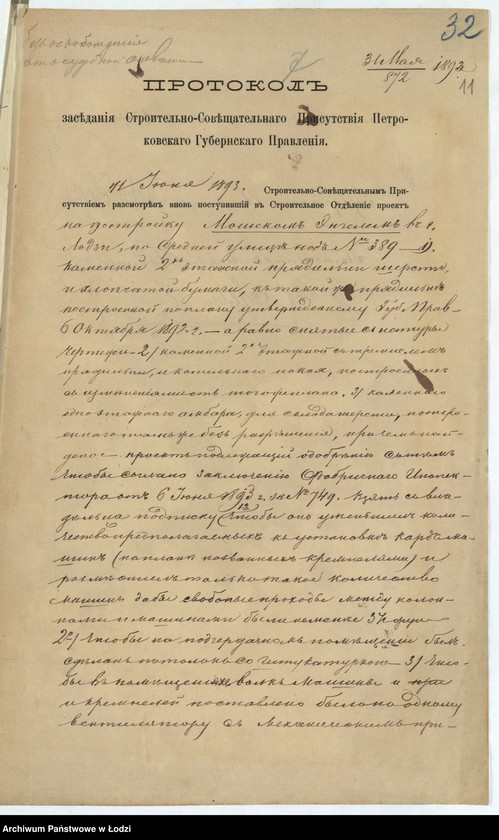 32
31 Мая 1893
872
11
ПРОТОКОЛЪ
засѣданія Строительно-Совѣщательнаго Присутствія Петро-
ковскаго Губернскаго Правленія.
11 Іюня 1893. Строительно-Совѣщательнымъ При-
сутствіемъ разсмотрѣнъ вновь поступившій въ Строительное Отдѣленіе проектъ
на постройку Мошекомъ въ г.
Лодзи, по Средней улицѣ подъ № 389
каменной 2хъ этажной прядильни шерсти
и хлопчатой бумаги, къ такой же прядильнѣ
построенной по плану утвержденному Губ. Прав-
6 Октября 1892 г. — а равно снятые съ натуры
чертежи 2/ каменной 2хъ этажной съ
прядильни, и котельнаго
съ измѣненіями 3/ каменнаго
одноэтажнаго амбара, для склада шерсти, постро-
еннаго также безъ разрѣшенія, при чемъ най-
дено: проектъ подлежащій одобренію съ тѣмъ
чтобы согласно заключенію Фабричнаго Инспек-
тора отъ 6 Іюня 1893 г. за № 749. взять съ вла-
дѣльца подписку 1/ чтобы онъ уменьшилъ коли-
чество предполагаемыхъ къ установкѣ кардъ ма-
шинъ (на планѣ названныхъ кремпелями) и
размѣстилъ только такое количество
машинъ дабы свободные проходы между колон-
нами и машинами были не менѣе 3хъ фут.
2) Чтобы на подчердачномъ помѣщеніи былъ
сдѣланъ потолокъ со штукатуркою 3) Что-
бы въ помѣщеніяхъ волкъ машины и
и кремпелей поставлено было по одному
вентилятору съ механическимъ при-
Archiwum Państwowe w Łodzi